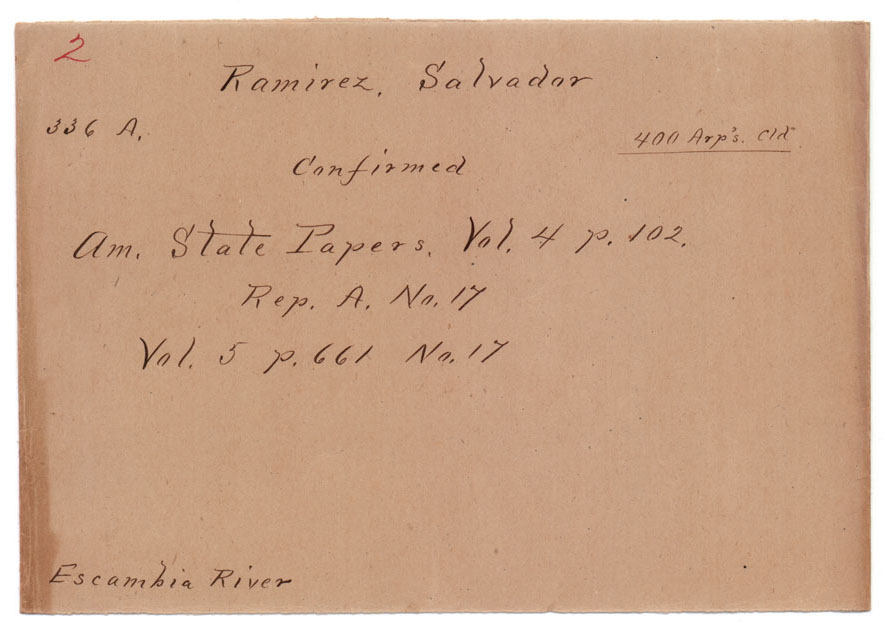 2
Ramirez, Salvador
336 A.
400 Arp's. Cld
Confirmed
Am. State Papers. Vol. 4 p. 102.
Rep. A. No. 17
Vol. 5 p. 661 No. 17
Escambia River